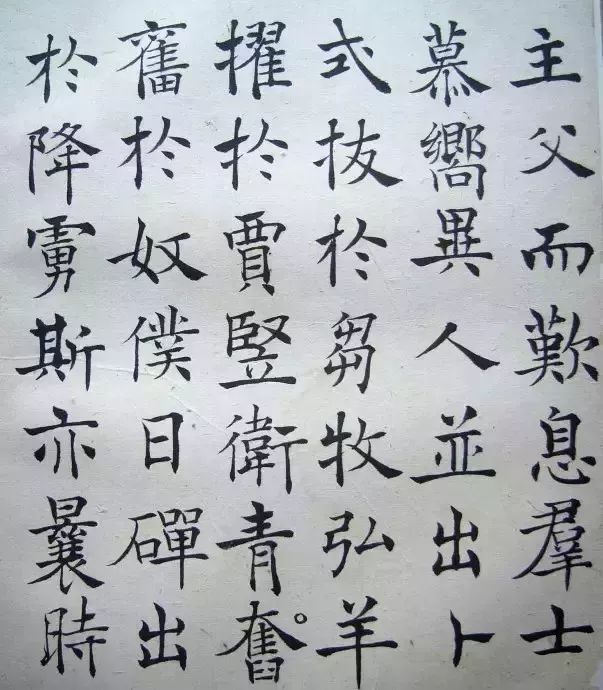 主父而歎息羣士
慕嚮異人並出卜
式拔於芻牧弘羊
擢於賈豎衛青奮
奮於奴僕日磾出
於降虜斯亦曩時